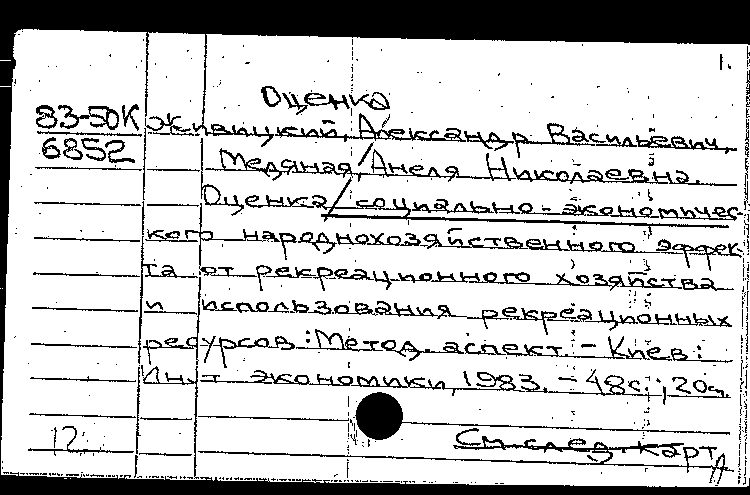 1.
Оценка
83-50К Живицкий, Александр Васильевич,
6852 Медяная, Анеля Николаевна.
Оценка/социально-экономичес-
кого народнохозяйственного эффек-
та от рекреационного хозяйства
и использования рекреационных
ресурсов: Метод. аспект. - Киев:
Ин-т экономики, 1983. - 48с.; 20см.
12.
См.след.карт.